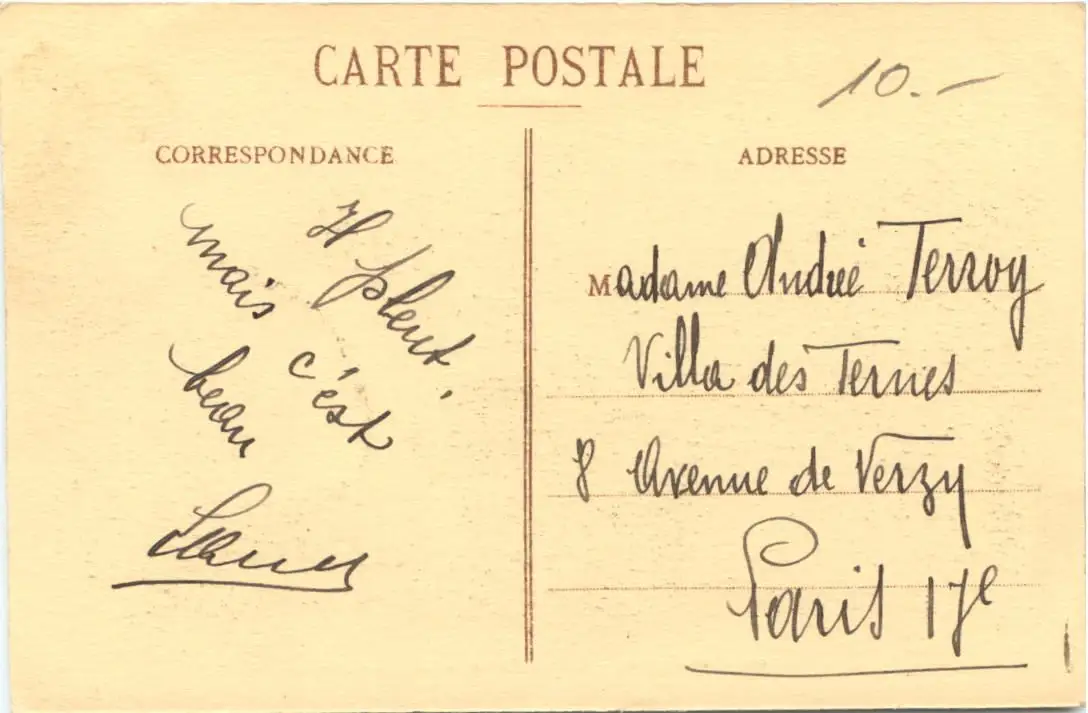 CARTE POSTALE
10.-
CORRESPONDANCE
ADRESSE
Il pleut,
mais c'est
beau
Madame Andrée Terroy
Villa des Ternes
8 Avenue de Verzy
Paris 17e